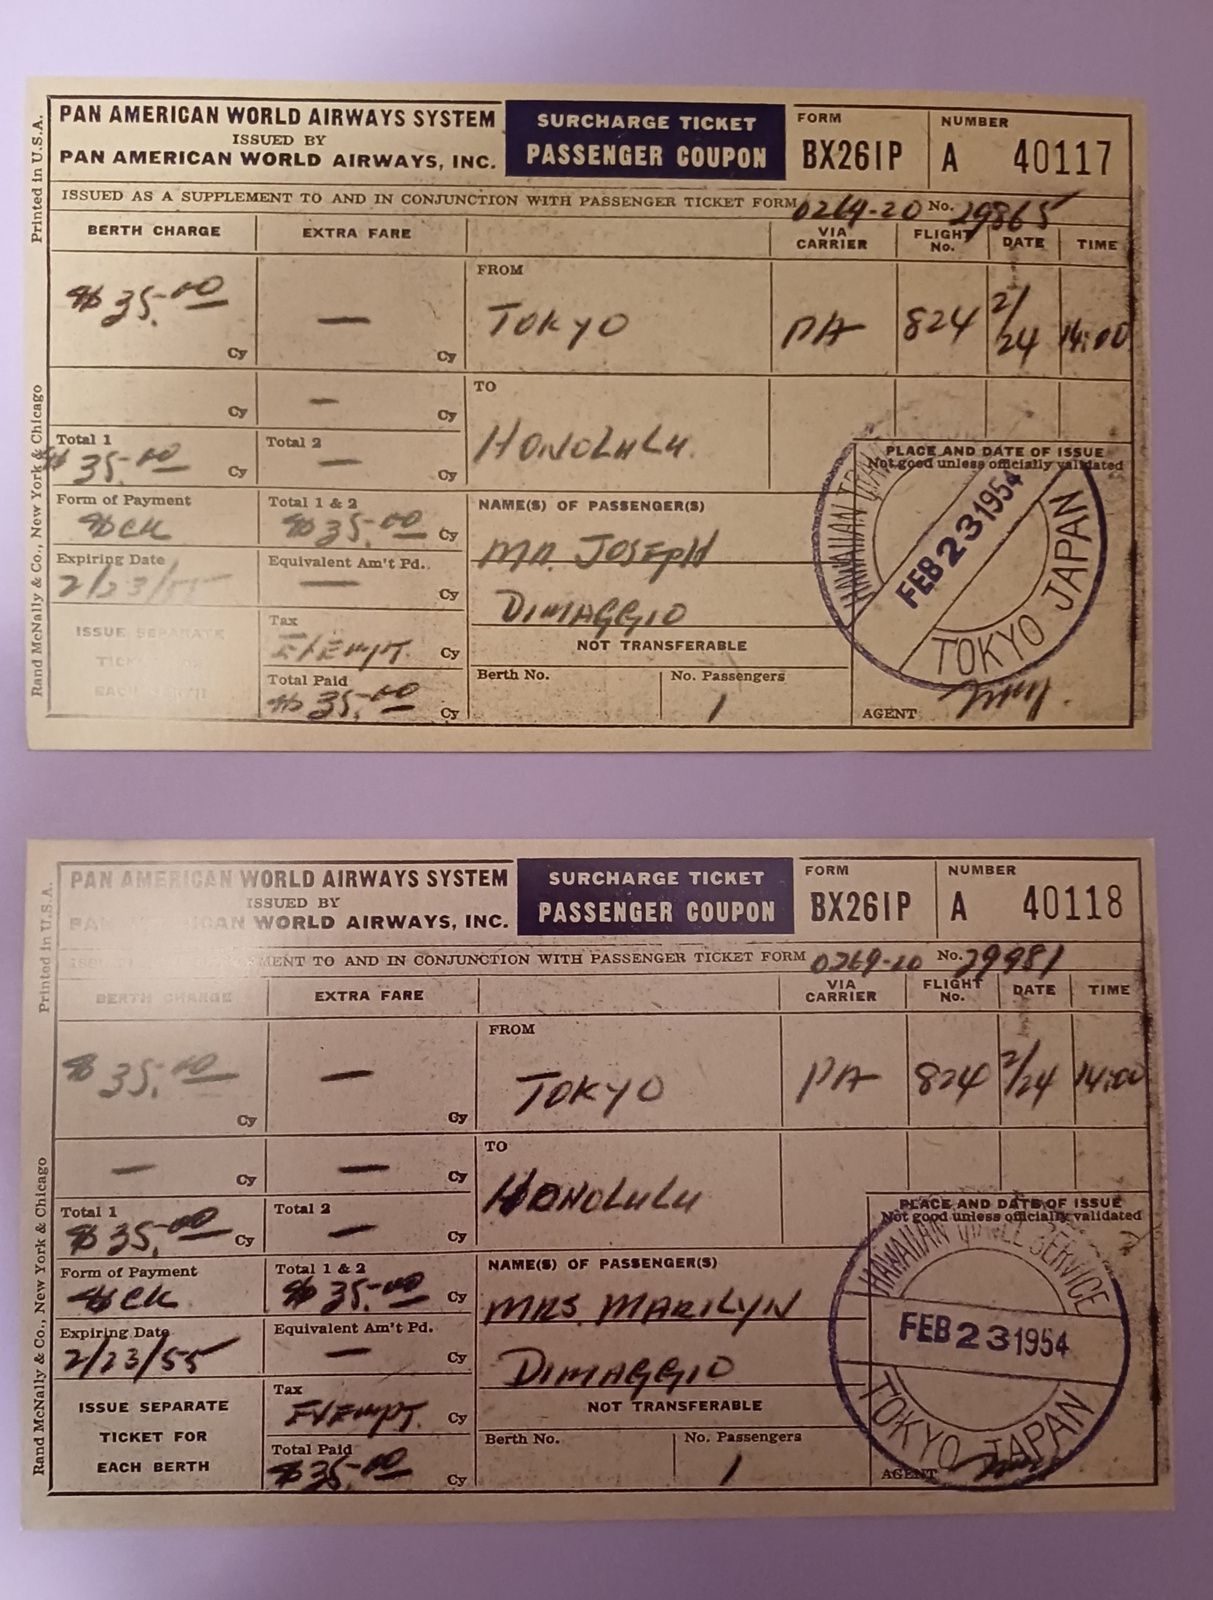 PAN AMERICAN WORLD AIRWAYS SYSTEM
ISSUED BY
PAN AMERICAN WORLD AIRWAYS, INC.
SURCHARGE TICKET
PASSENGER COUPON
FORM
BX261P
NUMBER
A 40117
Printed in U.S.A.
Rand McNally & Co., New York & Chicago
ISSUED AS A SUPPLEMENT TO AND IN CONJUNCTION WITH PASSENGER TICKET FORM 0269-20 No. 29865
BERTH CHARGE EXTRA FARE VIA CARRIER FLIGHT No. DATE TIME
$35.00 Cy — Cy
FROM
TOKYO PA 824 2/24 14:00
Cy — Cy
TO
HONOLULU
Total 1
$35.00 Cy
Total 2
— Cy
Form of Payment
$CK
Total 1 & 2
$35.00 Cy
Expiring Date
2/23/55
Equivalent Am't Pd.
— Cy
ISSUE SEPARATE
TICKET FOR
EACH BERTH
Tax
EXEMPT. Cy
Total Paid
$35.00 Cy
NAME(S) OF PASSENGER(S)
MR. JOSEPH
DIMAGGIO
NOT TRANSFERABLE
Berth No.
No. Passengers
1
PLACE AND DATE OF ISSUE
Not good unless officially validated
HAWAIIAN
FEB 23 1954
TOKYO JAPAN
AGENT
PAN AMERICAN WORLD AIRWAYS SYSTEM
ISSUED BY
PAN AMERICAN WORLD AIRWAYS, INC.
SURCHARGE TICKET
PASSENGER COUPON
FORM
BX261P
NUMBER
A 40118
Printed in U.S.A.
Rand McNally & Co., New York & Chicago
MENT TO AND IN CONJUNCTION WITH PASSENGER TICKET FORM 0269-20 No. 29981
BERTH CHARGE EXTRA FARE VIA CARRIER FLIGHT No. DATE TIME
$35.00 Cy — Cy
FROM
TOKYO PA 824 2/24 14:00
— Cy — Cy
TO
HONOLULU
Total 1
$35.00 Cy
Total 2
— Cy
Form of Payment
$CK
Total 1 & 2
$35.00 Cy
Expiring Date
2/23/55
Equivalent Am't Pd.
— Cy
ISSUE SEPARATE
TICKET FOR
EACH BERTH
Tax
EXEMPT. Cy
Total Paid
$35.00 Cy
NAME(S) OF PASSENGER(S)
MRS. MARILYN
DIMAGGIO
NOT TRANSFERABLE
Berth No.
No. Passengers
1
PLACE AND DATE OF ISSUE
Not good unless officially validated
HAWAIIAN SERVICE
FEB 23 1954
TOKYO JAPAN
AGENT